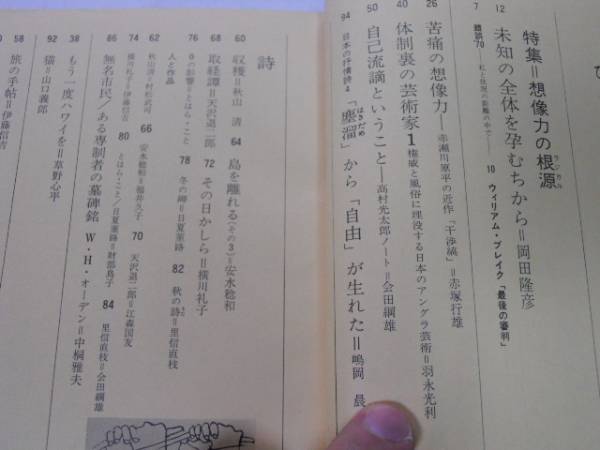 特集＝想像力の根源
ラジカル
12 未知の全体を孕むちから＝岡田隆彦
7 雑誌70
10 ウィリアム・ブレイク「最後の審判」
26 苦痛の想像力――赤瀬川原平の近作「干渉縞」＝赤塚行雄
40 体制裏の芸術家1 権威と風俗に埋没する日本のアングラ芸術＝羽永光利
50 自己流謫ということ――高村光太郎ノート＝会田綱雄
94 日本の抒情詩4 「塵溜」から「自由」が生れた＝嶋岡晨
はきだめ
詩
60 収穫＝秋山清
64 島を離れる(その3)＝安水稔和
68 取経譚＝天沢退二郎
72 その日かしら＝横川礼子
76 0の影響＝とはら・こと
78 冬の岬＝日夏重緑
82 秋の詩＝里信直枝
人と作品
62 秋山清＝村松武司
66 安水稔和＝福井久子
70 天沢退二郎＝江森国友
74 横川礼子＝伊藤信吉
80 とはら・こと／日夏重緑＝財部鳥子
84 里信直枝＝会田綱雄
86 無名市民／ある専制者の墓碑銘 W・H・オーデン＝中桐雅夫
38 もう一度ハワイを＝草野心平
92 猫＝山口義郎
58 旅の手帖＝伊藤信吉